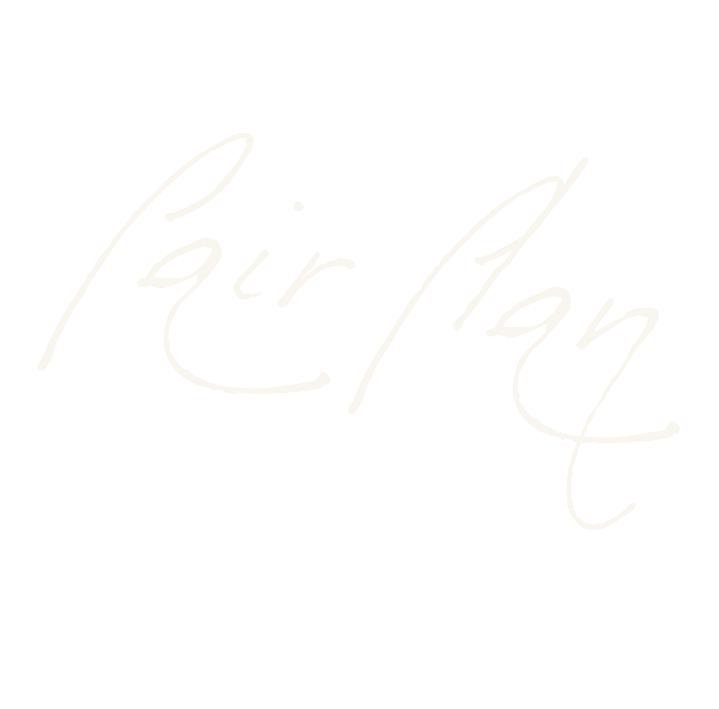 Pair Plan